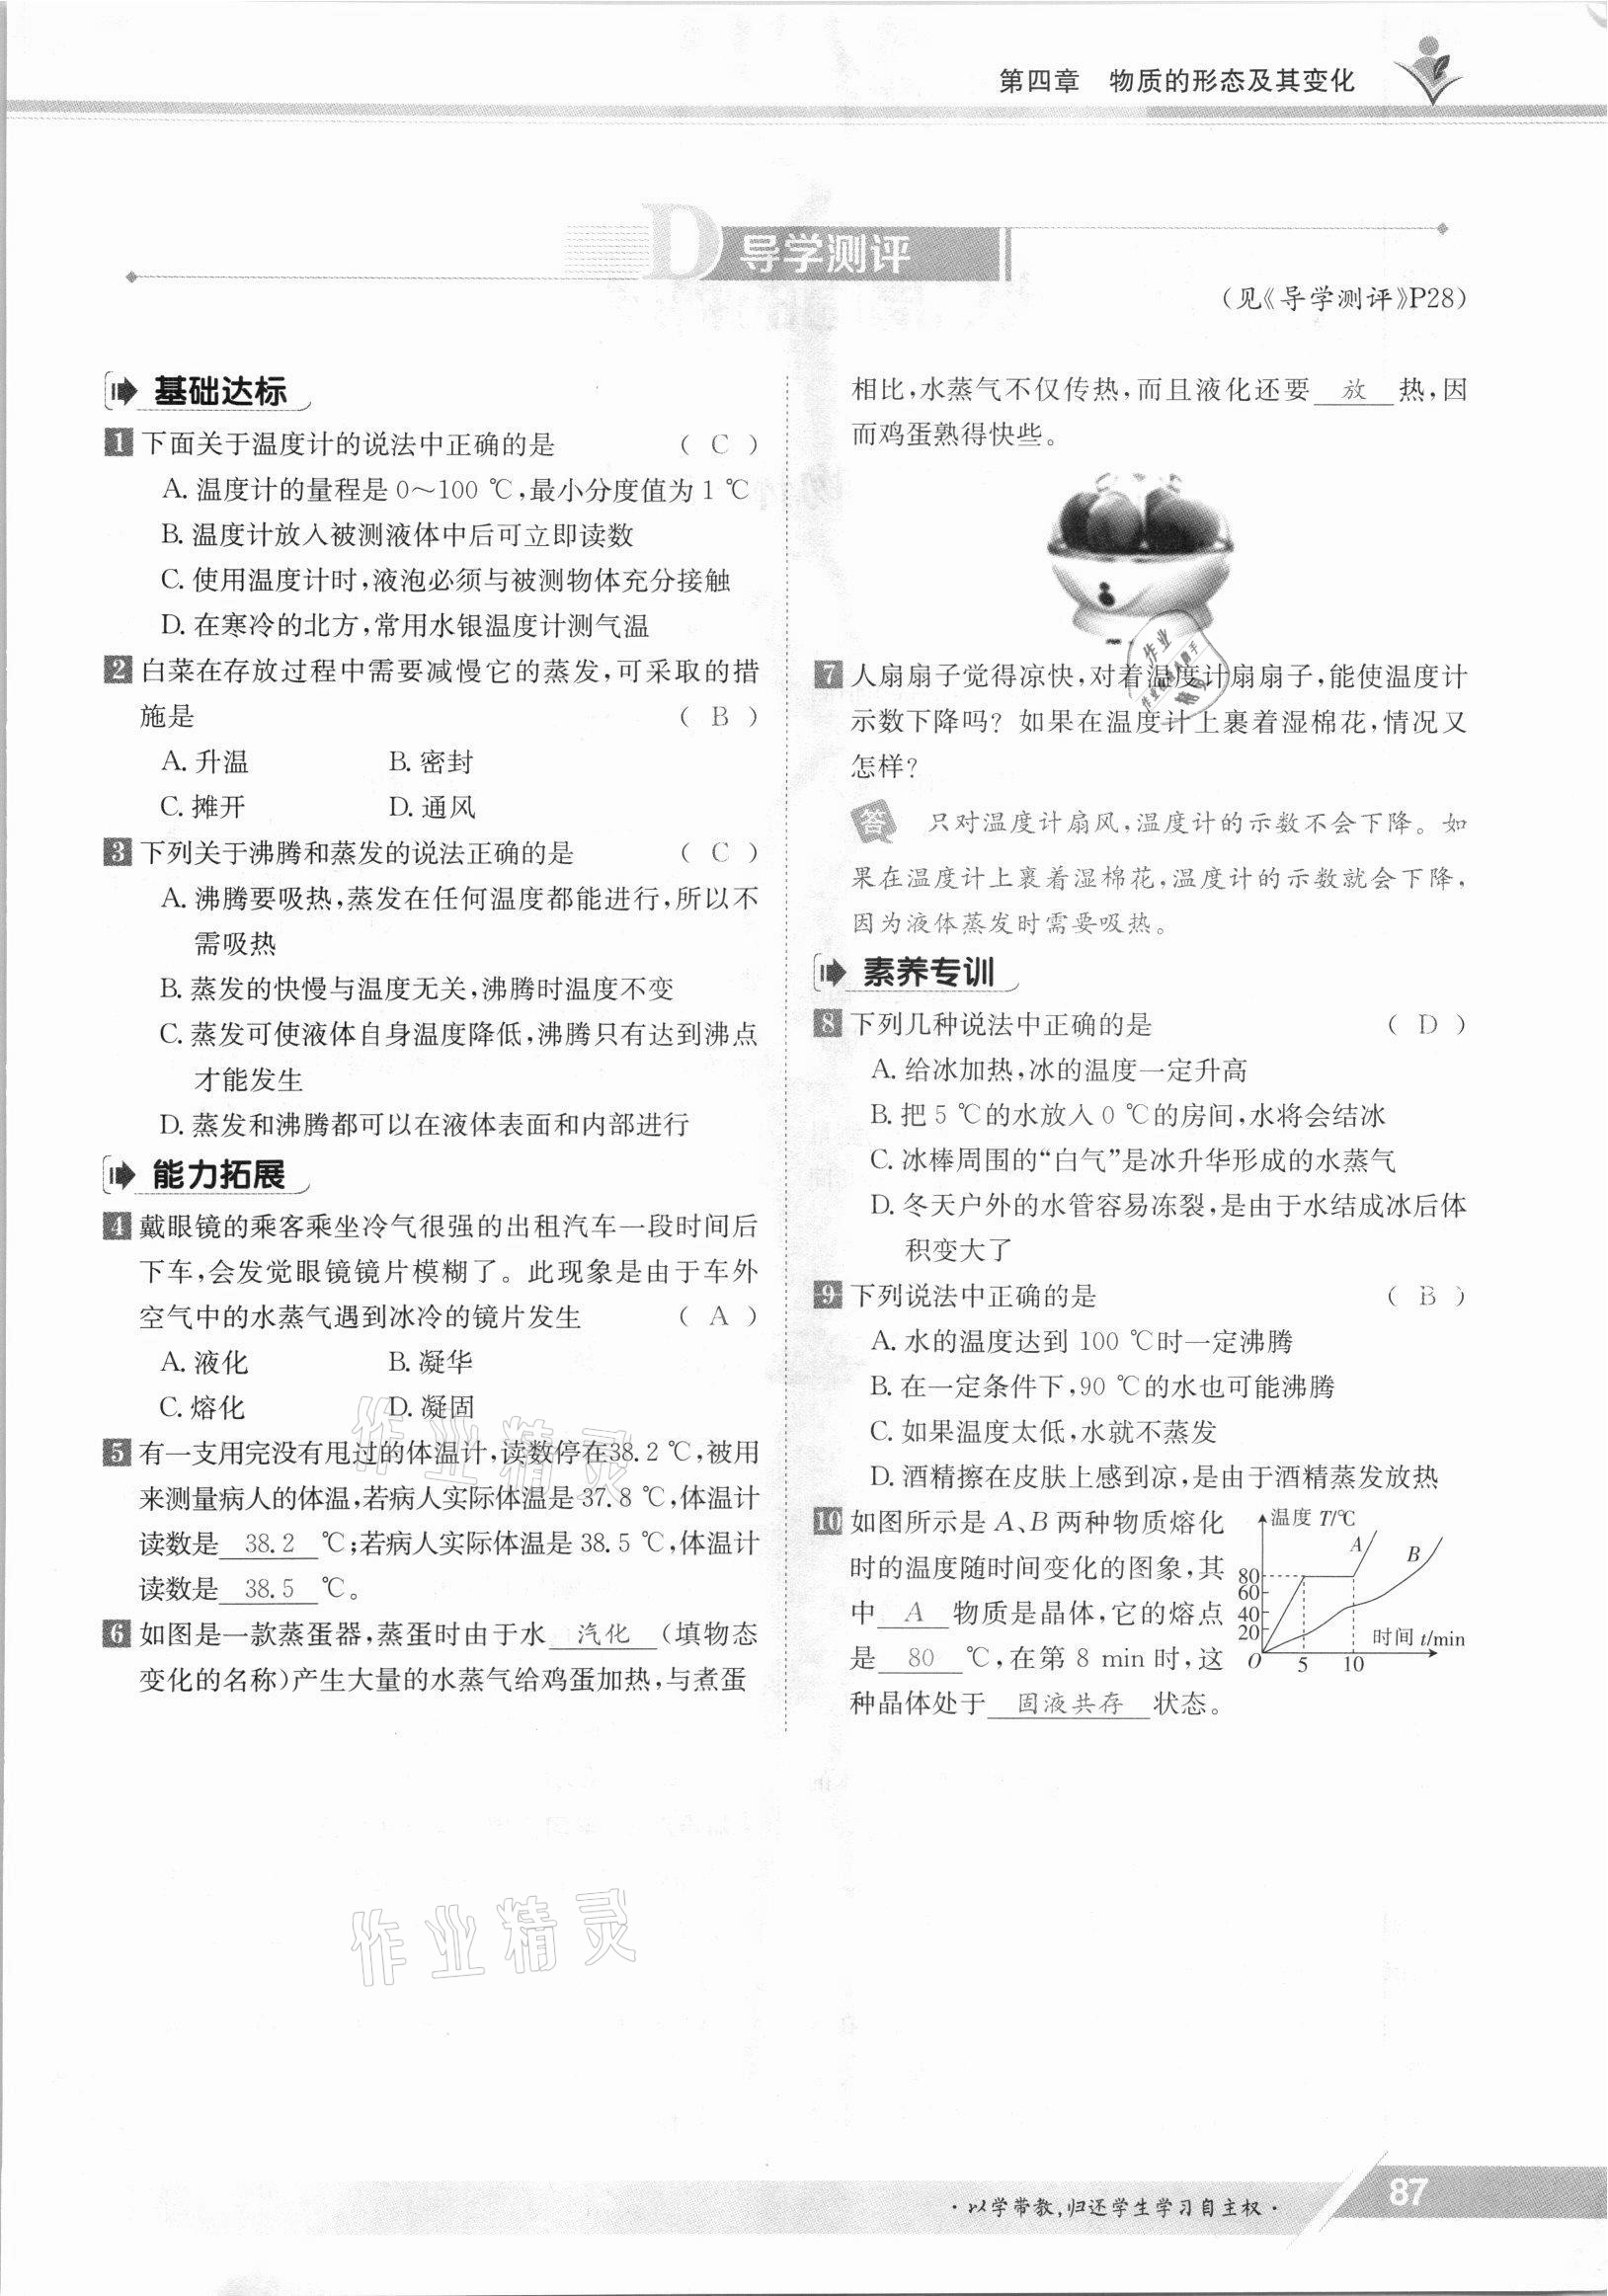 第四章 物质的形态及其变化
D 导学测评
(见《导学测评》P28)
基础达标
1 下面关于温度计的说法中正确的是 ( C )
A. 温度计的量程是 0～100 ℃,最小分度值为 1 ℃
B. 温度计放入被测液体中后可立即读数
C. 使用温度计时,液泡必须与被测物体充分接触
D. 在寒冷的北方,常用水银温度计测气温
2 白菜在存放过程中需要减慢它的蒸发,可采取的措
施是 ( B )
A. 升温 B. 密封
C. 摊开 D. 通风
3 下列关于沸腾和蒸发的说法正确的是 ( C )
A. 沸腾要吸热,蒸发在任何温度都能进行,所以不
需吸热
B. 蒸发的快慢与温度无关,沸腾时温度不变
C. 蒸发可使液体自身温度降低,沸腾只有达到沸点
才能发生
D. 蒸发和沸腾都可以在液体表面和内部进行
能力拓展
4 戴眼镜的乘客乘坐冷气很强的出租汽车一段时间后
下车,会发觉眼镜镜片模糊了。此现象是由于车外
空气中的水蒸气遇到冰冷的镜片发生 ( A )
A. 液化 B. 凝华
C. 熔化 D. 凝固
5 有一支用完没有甩过的体温计,读数停在38.2 ℃,被用
来测量病人的体温,若病人实际体温是 37.8 ℃,体温计
读数是 38.2 ℃;若病人实际体温是 38.5 ℃,体温计
读数是 38.5 ℃。
6 如图是一款蒸蛋器,蒸蛋时由于水 汽化 (填物态
变化的名称)产生大量的水蒸气给鸡蛋加热,与煮蛋
相比,水蒸气不仅传热,而且液化还要 放 热,因
而鸡蛋熟得快些。
7 人扇扇子觉得凉快,对着温度计扇扇子,能使温度计
示数下降吗? 如果在温度计上裹着湿棉花,情况又
怎样?
答 只对温度计扇风,温度计的示数不会下降。如
果在温度计上裹着湿棉花,温度计的示数就会下降,
因为液体蒸发时需要吸热。
素养专训
8 下列几种说法中正确的是 ( D )
A. 给冰加热,冰的温度一定升高
B. 把 5 ℃的水放入 0 ℃的房间,水将会结冰
C. 冰棒周围的“白气”是冰升华形成的水蒸气
D. 冬天户外的水管容易冻裂,是由于水结成冰后体
积变大了
9 下列说法中正确的是 ( B )
A. 水的温度达到 100 ℃时一定沸腾
B. 在一定条件下,90 ℃的水也可能沸腾
C. 如果温度太低,水就不蒸发
D. 酒精擦在皮肤上感到凉,是由于酒精蒸发放热
10 如图所示是 A、B 两种物质熔化
时的温度随时间变化的图象,其
中 A 物质是晶体,它的熔点
是 80 ℃,在第 8 min 时,这
种晶体处于 固液共存 状态。
温度 T/℃
A
B
80
60
40
20
O 5 10
时间 t/min
作业精灵
作业精灵
·以学带教,归还学生学习自主权·
87